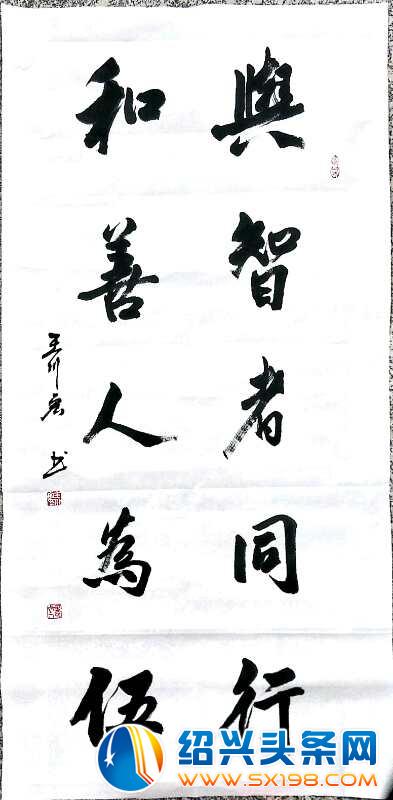 與智者同行
和善人為伍
书
绍兴头条网
WWW.SX198.COM